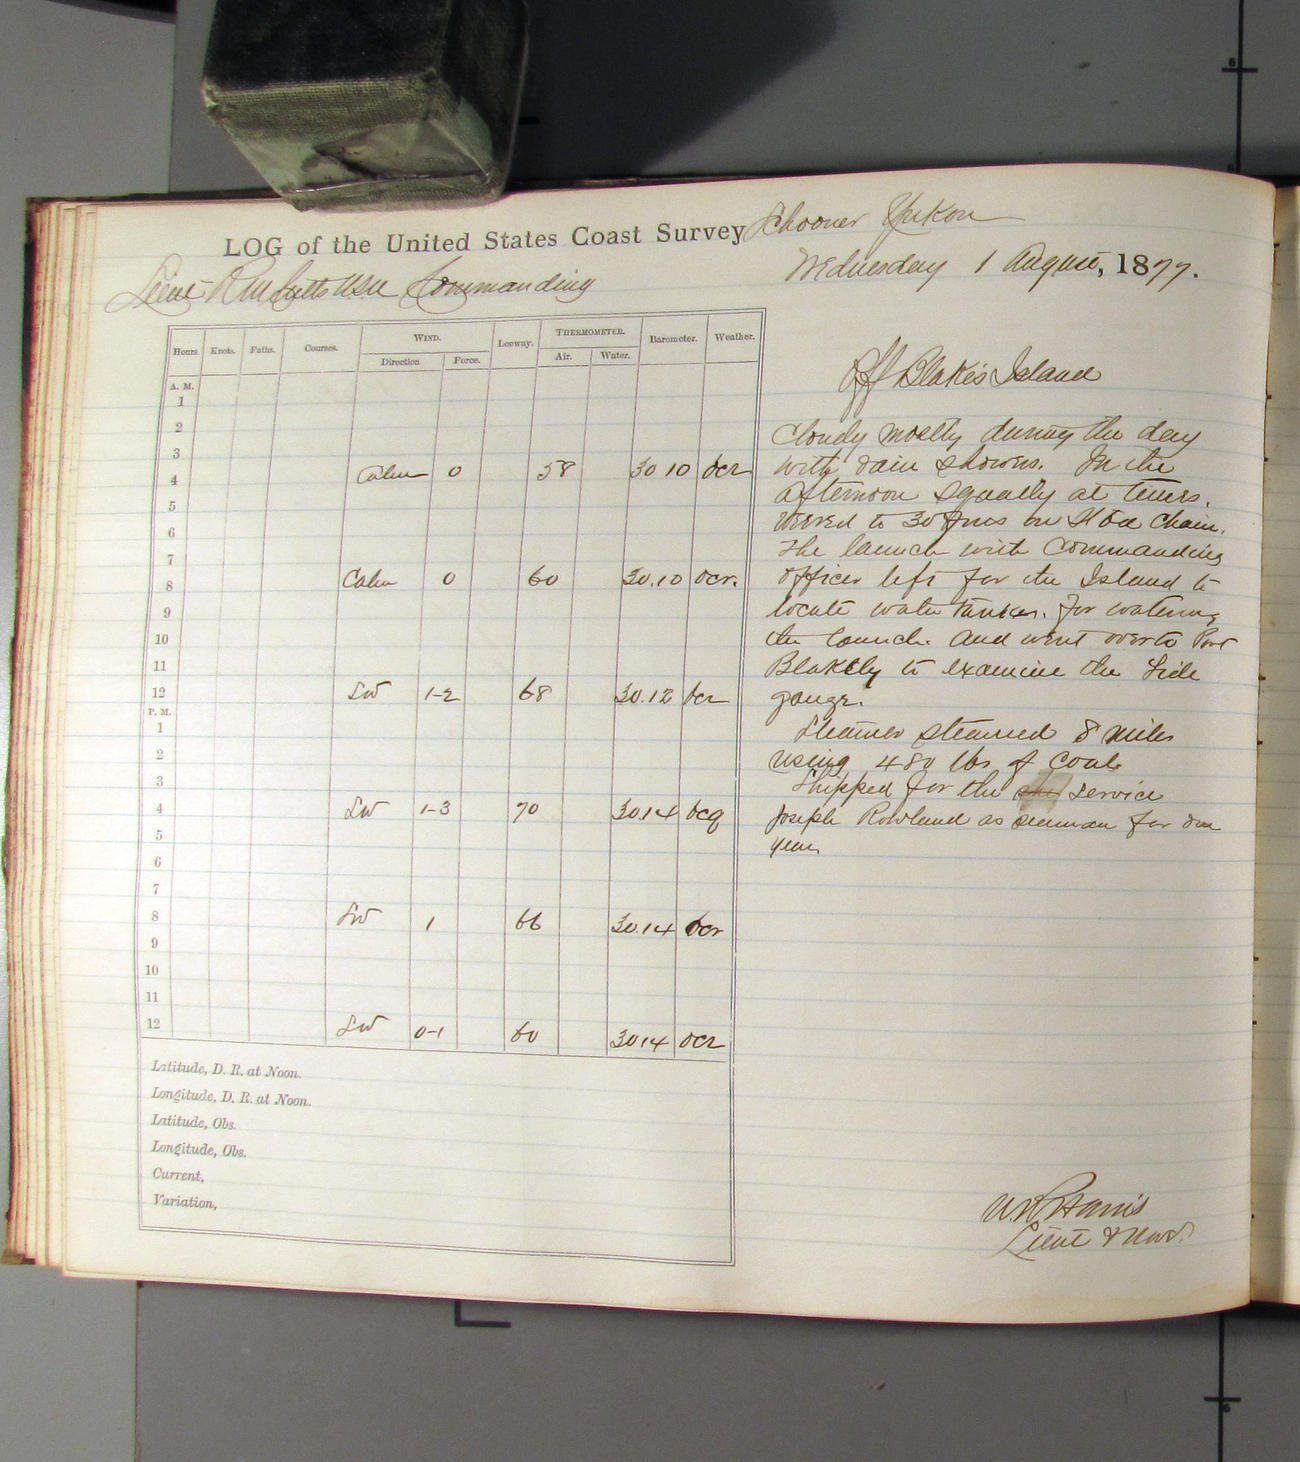 LOG of the United States Coast Survey Schooner Yukon
Wednesday 1 August, 1877.
Lieut R M Cutts USN Commanding
Hours. Knots. Faths. Courses. WIND. Leeway. THERMOMETER. Barometer. Weather.
Direction. Force. Air. Water.
A. M.
1
2
3
4 Calm 0 58 30 10 ocr
5
6
7
8 Calm 0 60 30.10 ocr.
9
10
11
12 SW 1-2 68 30.12 bcr
P. M.
1
2
3
4 SW 1-3 70 30.14 bcq
5
6
7
8 SW 1 66 30.14 bcr
9
10
11
12 SW 0-1 60 30 14 ocr
Latitude, D. R. at Noon.
Longitude, D. R. at Noon.
Latitude, Obs.
Longitude, Obs.
Current,
Variation,
Off Blake's Island
Cloudy mostly during the day
with rain showers. In the
afternoon squally at times.
Veered to 30 fms on Stbd Chain.
The launch with Commanding
officer left for the Island to
locate water tanks. for watering
the launch. and went over to Port
Blakely to examine the tide
gauge.
Steamer steamed 8 miles
using 480 lbs of coal
Shipped for the service
Joseph Rowland as seaman for one
year.
Harris
Lieut & Nav.
6
6